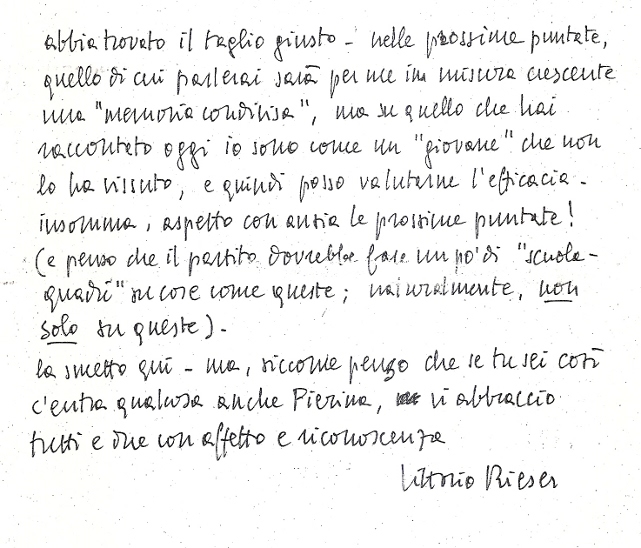 abbia trovato il taglio giusto - nelle prossime puntate,
quello di cui parlerai sarà per me in misura crescente
una "memoria condivisa", ma su quello che hai
raccontato oggi io sono come un "giovane" che non
lo ha vissuto, e quindi posso valutarne l'efficacia -
insomma, aspetto con ansia le prossime puntate!
(e penso che il partito dovrebbe fare un po' di "scuola-
quadri" su cose come queste; naturalmente, non
solo su queste) -
la smetto qui - ma, siccome penso che se tu sei così
c'entra qualcosa anche Pierina, vi abbraccio
tutti e due con affetto e riconoscenza
Vittorio Rieser